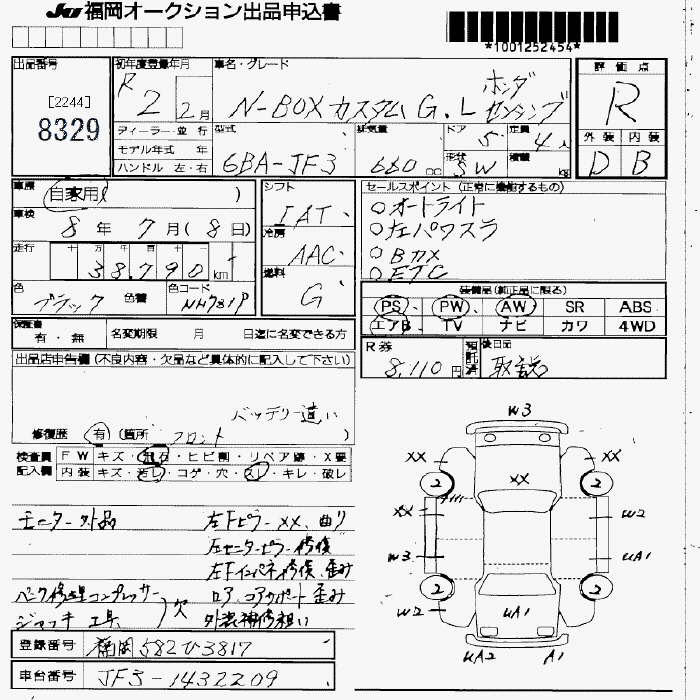 JU 福岡オークション出品申込書
*1001252454*
出品番号
[2244]
8329
初年度登録年月
R 2 2月
車名・グレード
ホンダ
N-BOXカスタム G.L センシング
評価点
R
外装 内装
D B
ディーラー・並行
モデル年式 年
ハンドル 左・右
型式
6BA-JF3
排気量
660 cc
ドア
5
定員
4人
形状
SW
積載
kg
車歴
自家用( )
車検
8年 7月(8日)
走行
十 万 千 百 十 一
38,790 km
色
ブラック
色替
色コード
NH731P
シフト
IAT
冷房
AAC
燃料
G
セールスポイント (正常に機能するもの)
○オートライト
○左パワスラ
○Bカメ
○ETC
装備品(純正品に限る)
PS PW AW SR ABS
エアB TV ナビ カワ 4WD
保証書
有・無
名変期限 月 日迄に名変できる方
R券
8,110円
預託済
後日品
取説
出品店申告欄 (不良内容・欠品など具体的に記入して下さい)
バッテリー違い
修復歴 有 (箇所 フロント )
検査員 FW キズ・飛石・ヒビ割・リペア跡・X要
記入欄 内装 キズ・汚レ・コゲ・穴・スレ・キレ・破レ
モニター外品
左Fピラー XX、曲り
左センターピラー修復
左Fインパネ修復、歪み
パンク修理コンプレッサー
ロア、コアサポート歪み
ジャッキ 工具 欠
外装補修粗い
登録番号 福岡582ひ3817
車台番号 JF3-1432209
W3
XX XX
XX
2 2
XX W2
W3 UA1
2 2
W2 UA1
UA2 A1